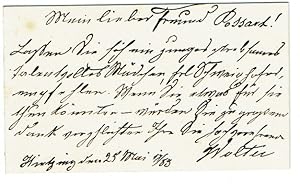 Mein lieber Freund Possart!
Lassen Sie sich ein junges strebsames
talentvolles Mädchen Frl Schweighofer
empfehlen. Wenn Sie etwas für sie
thun könnten – würden Sie zu großem
Dank verpflichten Ihre Sie hochverehrende
Hietzing den 25 Mai 83
Wolter